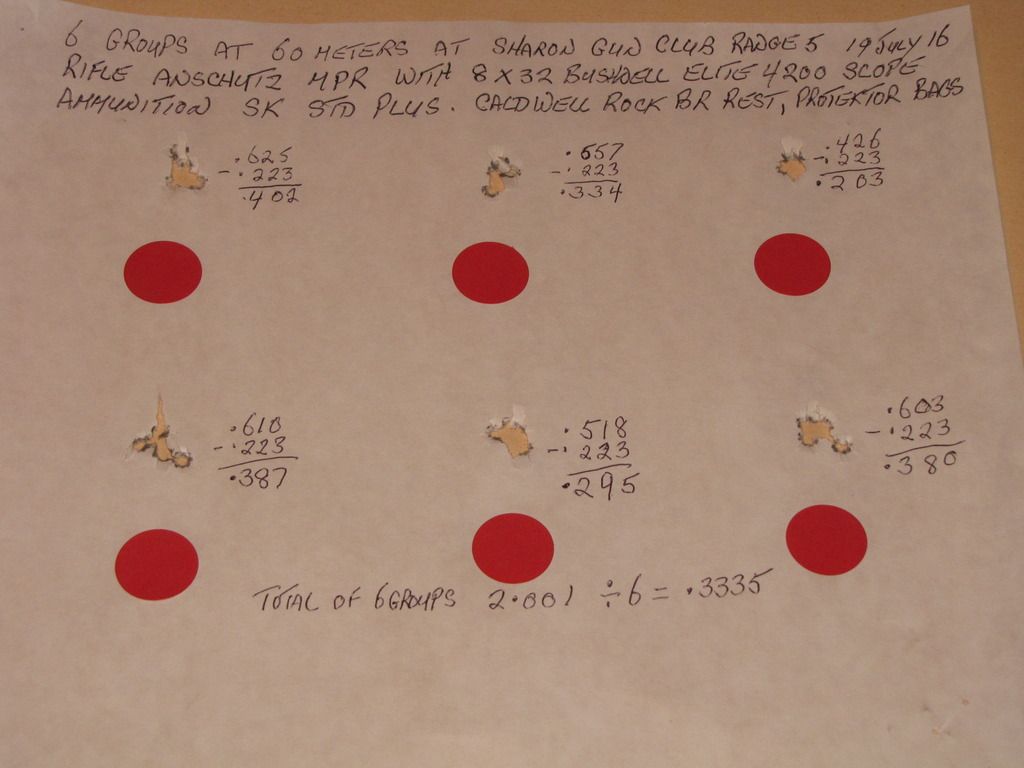 6 GROUPS AT 60 METERS AT SHARON GUN CLUB RANGE 5 19 JULY 16
RIFLE ANSCHUTZ MPR WITH 8X32 BUSHNELL ELITE 4200 SCOPE
AMMUNITION SK STD PLUS. CALDWELL ROCK BR REST, PROTEKTOR BAGS
.625
- .223
.402
.557
- .223
.334
.426
- .223
.203
.610
- .223
.387
.518
- .223
.295
.603
- .223
.380
TOTAL OF 6 GROUPS 2.001 ÷ 6 = .3335